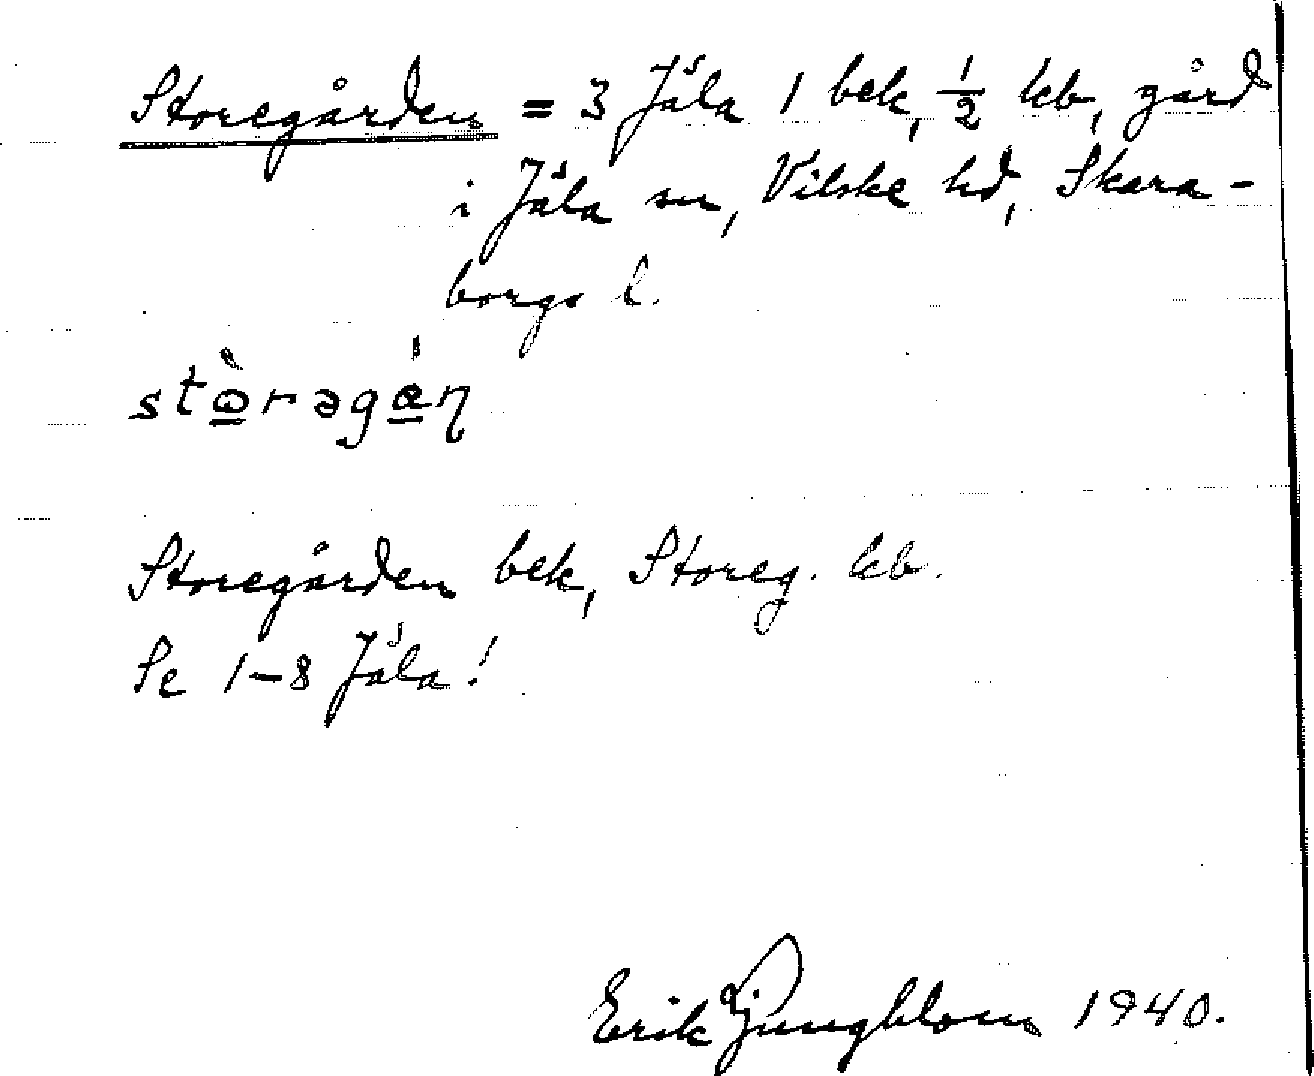 Storegården = 3 Jäla 1 bek, ½ kb, gård
i Jäla sn, Vilske hd, Skara-
borgs l.
stòrəgán
Storegården bek, Storeg. kb.
Se 1–8 Jäla!
Erik Ljungblom 1940.